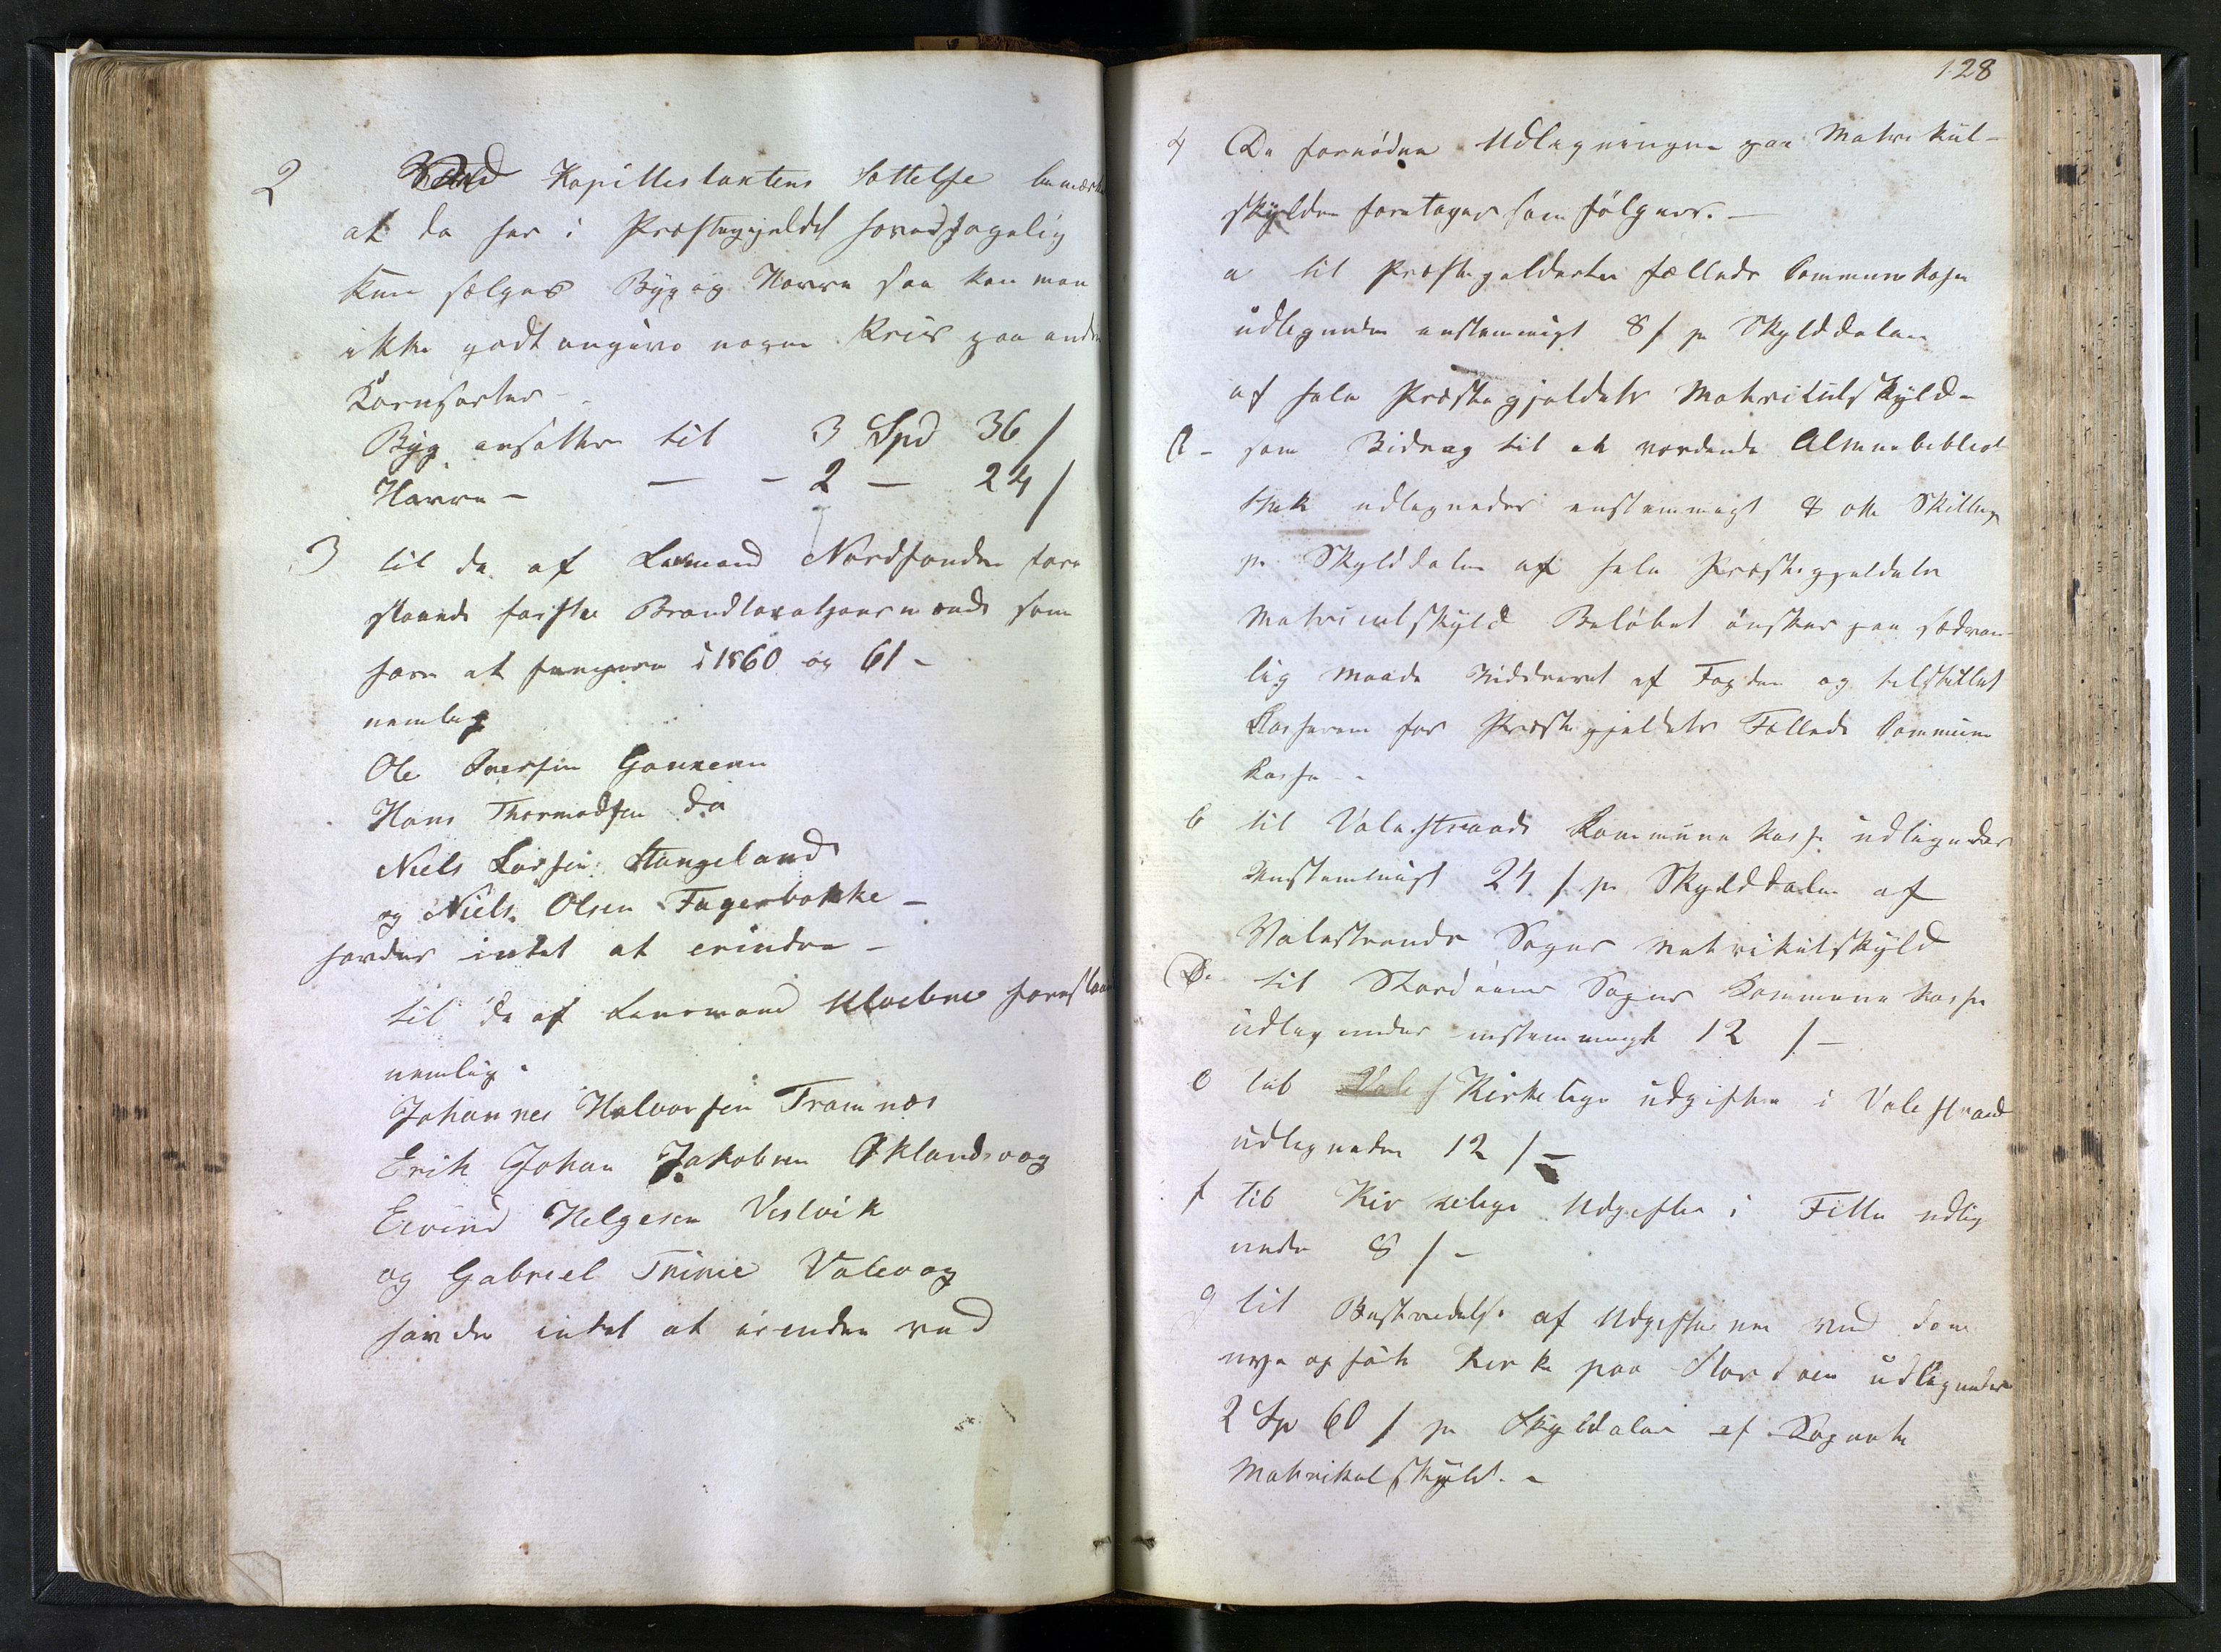 2 Ved Kapittestaxtens Sættelse bemærkes
at da her i Præstegjeldet hovedsagelig
kun sælges Byg og Havre saa kan man
ikke godt angive nogen Priis paa andre
Kornsorter -
Byg ansættes til 3 Spd 36 /
Havre - — - 2 — 24 /
3 til de af Lensmand Nordhunden fore
slaaede faste Brandtaxationsmænd som
have at fungere i 1860 og 61 -
nemlig
Ole Iversen
Hans Thormodsen do
Niels Larsen Stangeland
og Niels Olsen Fagerbakke -
havdes intet at erindre -
til de af Lensmand foreslaaede
nemlig.
Johannes Halvorsen Framnæs
Erik Johan Jakobsen Øklandsvog
Eivind Helgesen Vestvik
og Gabriel Trinie Valevog
havdes intet at erindre ved
128
4 De fornødne Udligninger paa Matrikul-
skylden foretages som følger. -
a til Præstegjeldets fælleds Communekasse
udlignedes enstemmigt 8 / pr Skylddaler
af hele Præstegjeldets Matrikulskyld -
B - som Bidrag til et vordende Almuebiblio
thek udlignedes enstemmigt 8 otte Skilling
pr Skylddaler af hele Præstegjeldets
Matriculskyld Beløbet ønskes paa sædvan
lig Maade inddrevet af Fogden og tilstillet
Kassereren for Præstegjeldets Fælleds Commune
Kasse - -
C til Valestrands Kommune Kasse udlignedes
Enstemmigt 24 / pr Skylddaler af
Valestrands Sogns Matrikulskyld
D. til Stordøens Sogns Kommune Kasse
udlignedes enstemmigt 12 / -
e til Vale / Kirkelige udgifter i Valestrand
udlignedes 12 / -
f til Kirkelige Udgifter i Fitte udlig
nedes 8 / -
g til Bestridelse af Udgifterne ved den
nye opførte Kirke paa Stordøen udlignedes
2 Sp 60 / pr Skyldaler af Sognets
Matrikulskyld. -